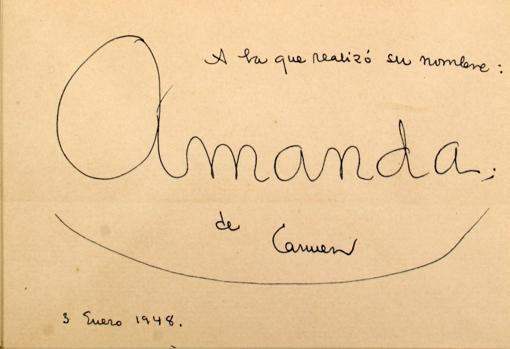 A la que realizó su nombre:
Amanda;
de
Carmen
3 Enero 1948.